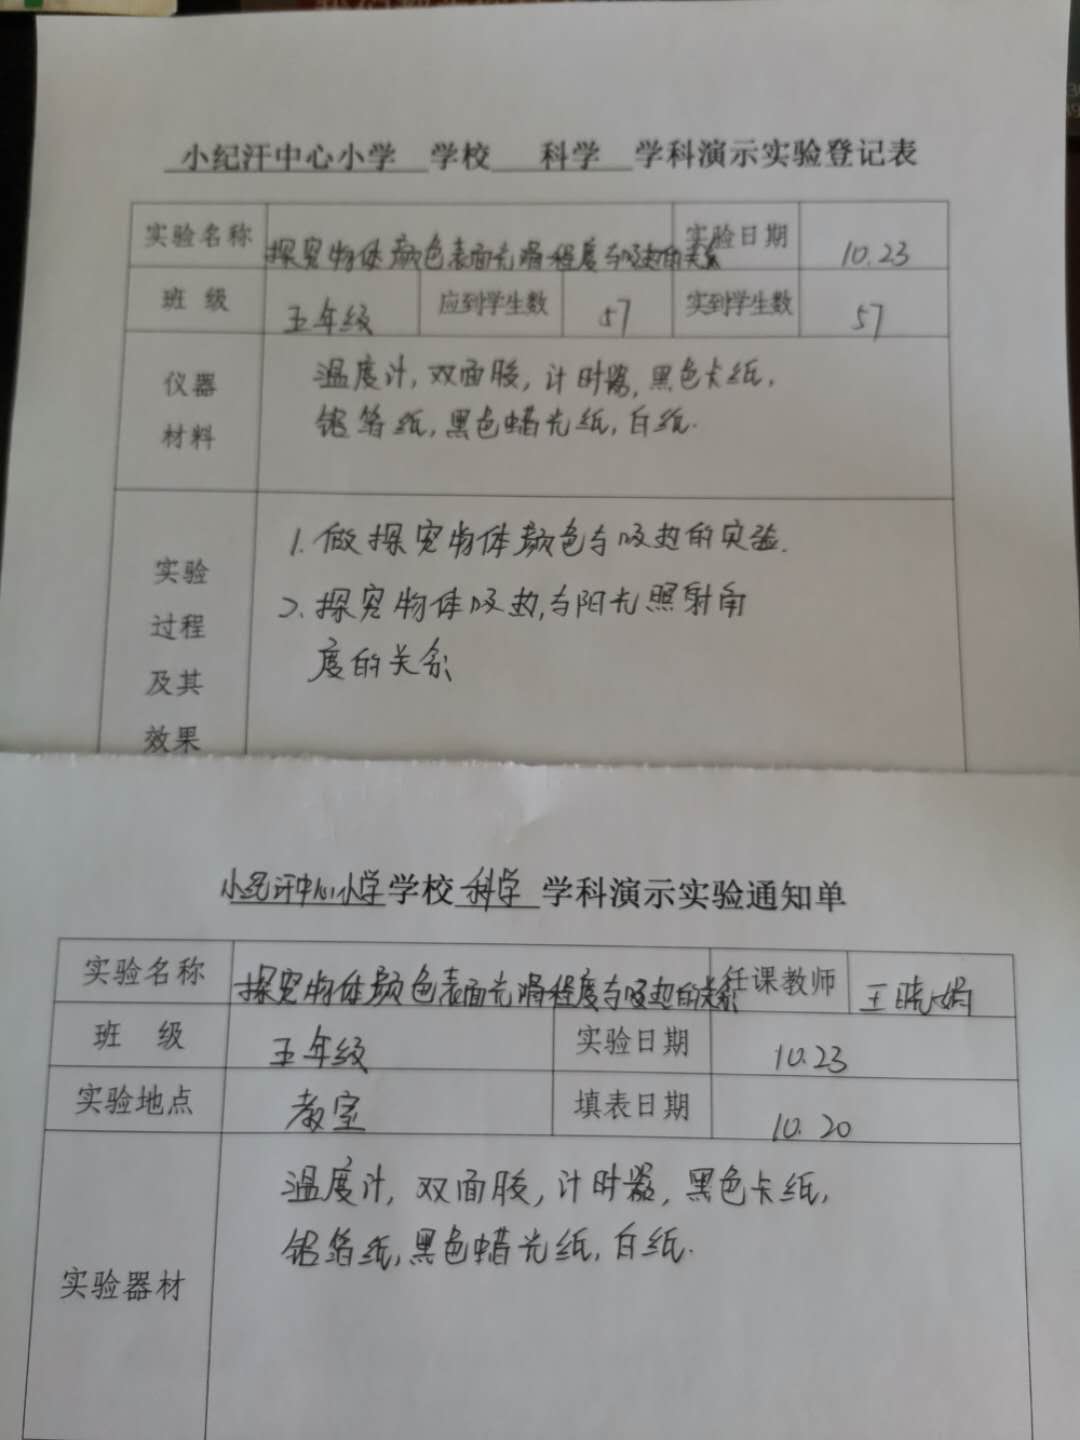 小纪汗中心小学 学校 科学 学科演示实验登记表
实验名称 探究物体颜色表面光滑程度与吸热的关系 实验日期 10.23
班 级 五年级 应到学生数 57 实到学生数 57
仪器 温度计,双面胶,计时器,黑色卡纸,
材料 铝箔纸,黑色蜡光纸,白纸.
1.做探究物体颜色与吸热的实验.
实验
2.探究物体吸热,与阳光照射角
过程
度的关系
及其
效果
小纪汗中心小学学校科学 学科演示实验通知单
实验名称 探究物体颜色表面光滑程度与吸热的关系 任课教师 王晓娟
班 级 五年级 实验日期 10.23
实验地点 教室 填表日期 10.20
温度计,双面胶,计时器,黑色卡纸,
铝箔纸,黑色蜡光纸,白纸.
实验器材